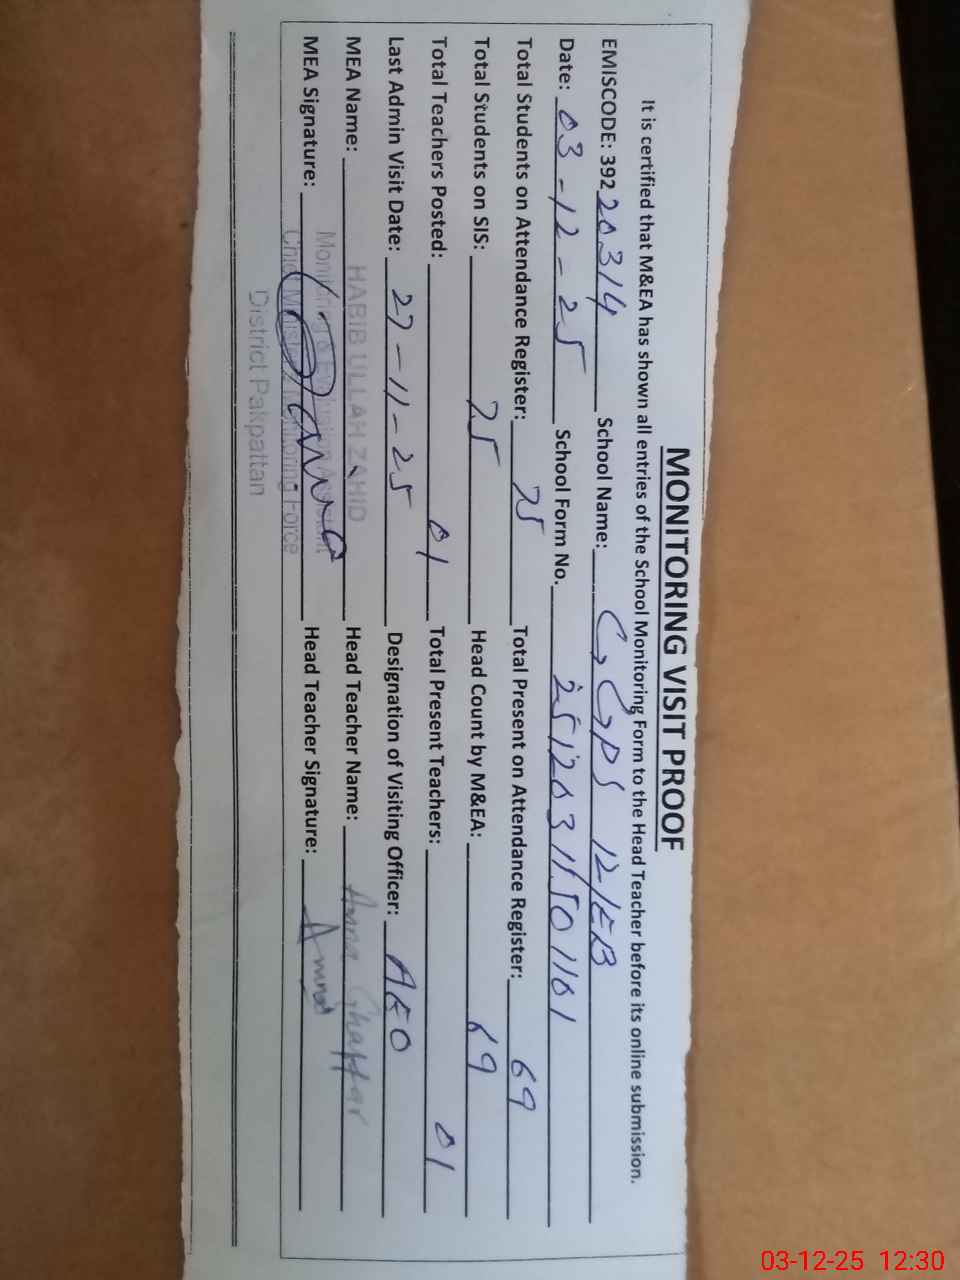 MONITORING VISIT PROOF
It is certified that M&EA has shown all entries of the School Monitoring Form to the Head Teacher before its online submission.
EMISCODE: 392 20314 School Name: GGPS 12/EB
Date: 03-12-25 School Form No. 25120311501101
Total Students on Attendance Register: 75 Total Present on Attendance Register: 69
Total Students on SIS: 75 Head Count by M&EA: 69
Total Teachers Posted: 01 Total Present Teachers: 01
Last Admin Visit Date: 27-11-25 Designation of Visiting Officer: AEO
MEA Name: HABIB ULLAH ZAHID Head Teacher Name: Amna Ghaffar
MEA Signature: Head Teacher Signature: Amna
Monitoring & Evaluation Assistant
Chief Minister's Monitoring Force
District Pakpattan
03-12-25 12:30